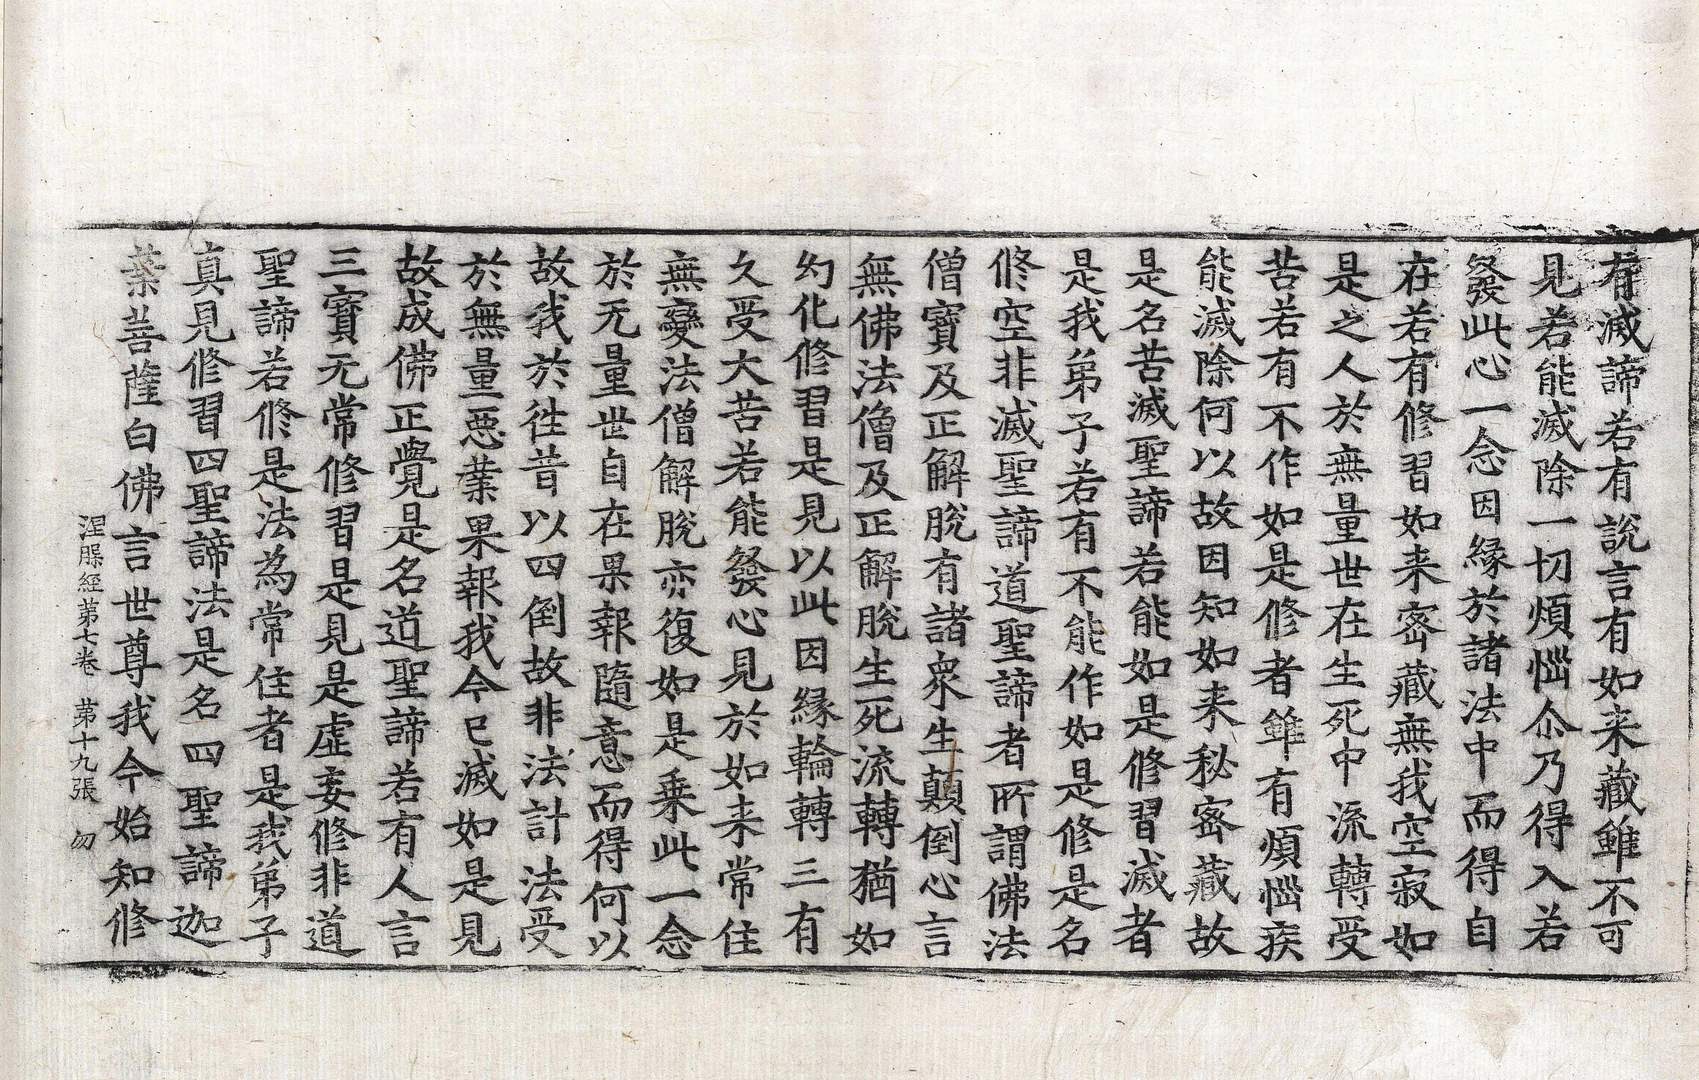 有滅諦若有說言有如来藏雖不可
見若能滅除一切煩惱尒乃得入若
發此心一念因縁於諸法中而得自
在若有修習如来宻藏無我空寂如
是之人於無量世在生死中流轉受
苦若有不作如是修者雖有煩惱疾
能滅除何以故因知如来秘宻藏故
是名苦滅聖諦若能如是修習滅者
是我弟子若有不能作如是修是名
修空非滅聖諦道聖諦者所謂佛法
僧寳及正解脫有諸衆生顛倒心言
無佛法僧及正解脫生死流轉猶如
幻化修習是見以此因縁輪轉三有
久受大苦若能發心見於如来常住
無變法僧解脫亦復如是乗此一念
於无量世自在果報隨意而得何以
故我於徃昔以四倒故非法計法受
於無量惡業果報我今已滅如是見
故成佛正覺是名道聖諦若有人言
三寳无常修習是見是虛妄修非道
聖諦若修是法為常住者是我弟子
真見修習四聖諦法是名四聖諦迦
葉菩薩白佛言世尊我今始知修
涅槃経苐七卷 苐十九張 勿